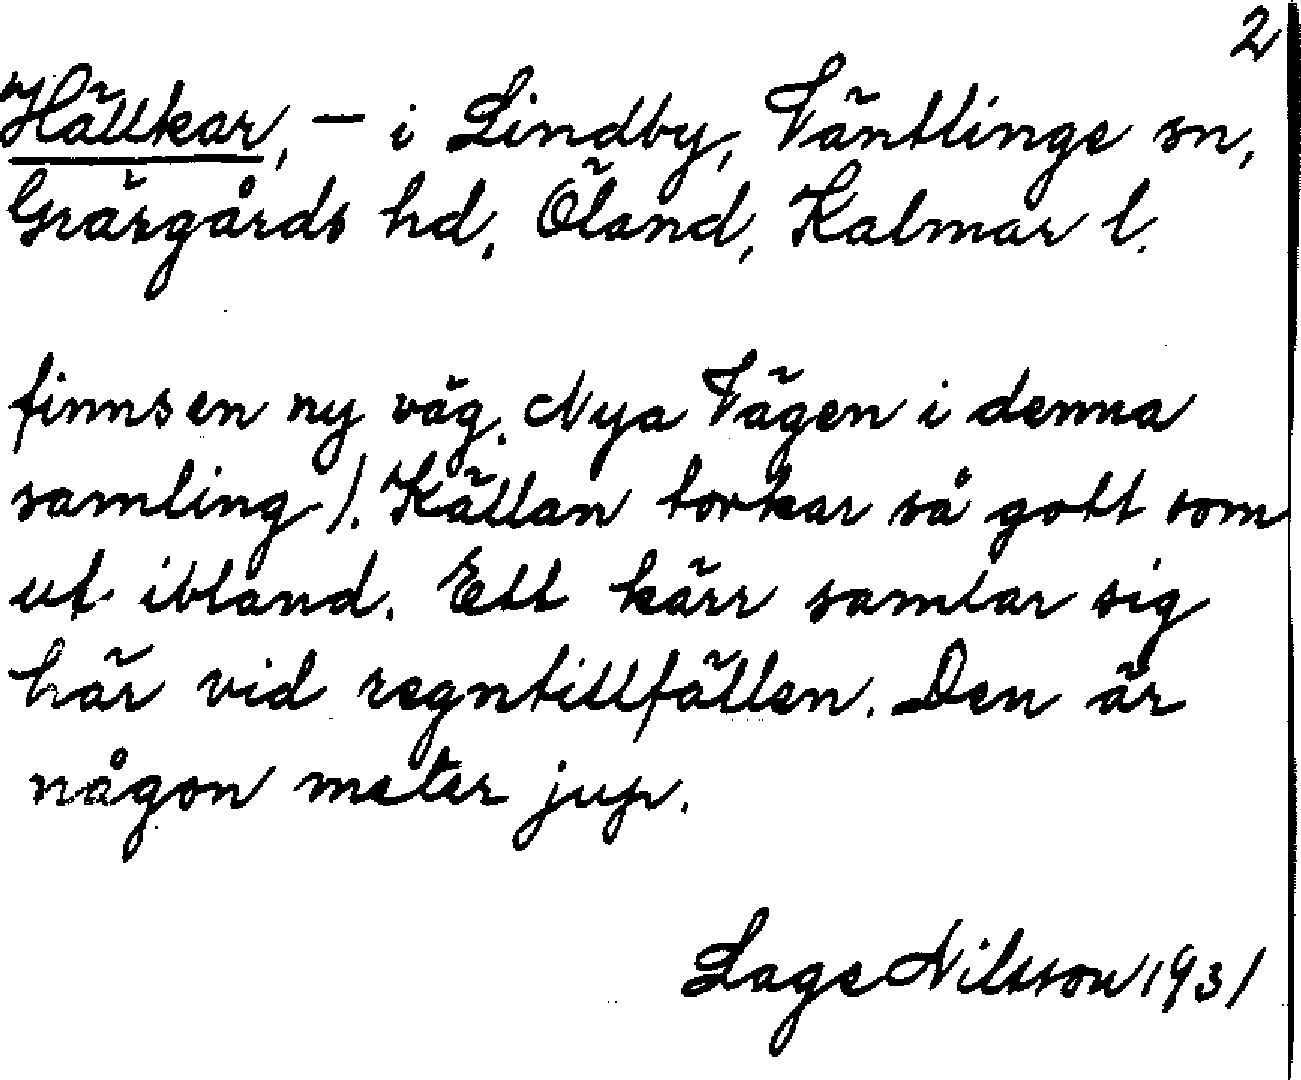 2
Hällkar, - i Lindby, Väntlinge sn,
Gräsgårds hd, Öland, Kalmar l.
finns en ny väg. Nya Vägen i denna
samling). Källan torkar så gott som
ut ibland. Ett kärr samlar sig
här vid regntillfällen. Den är
någon meter jup.
Lage Nilsson 1931